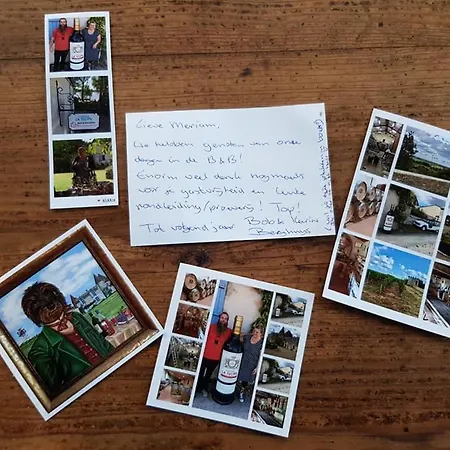 Lieve Merium,
We hebben genoten van onze
dagen in de B&B!
Enorm veel dank nogmaals
voor je gastvrijheid en leuke
rondleiding/proeverij! Top!
Tot volgend jaar
Bob & Karin
Berghuys